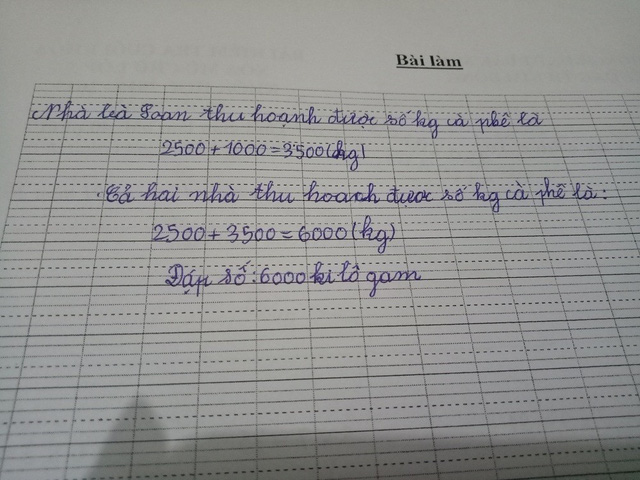 Bài làm
Nhà bà Toan thu hoạnh được số kg cà phê là
2500 + 1000 = 3500 (kg)
Cả hai nhà thu hoach được số kg cà phê là:
2500 + 3500 = 6000 (kg)
Đáp số: 6000 ki lô gam